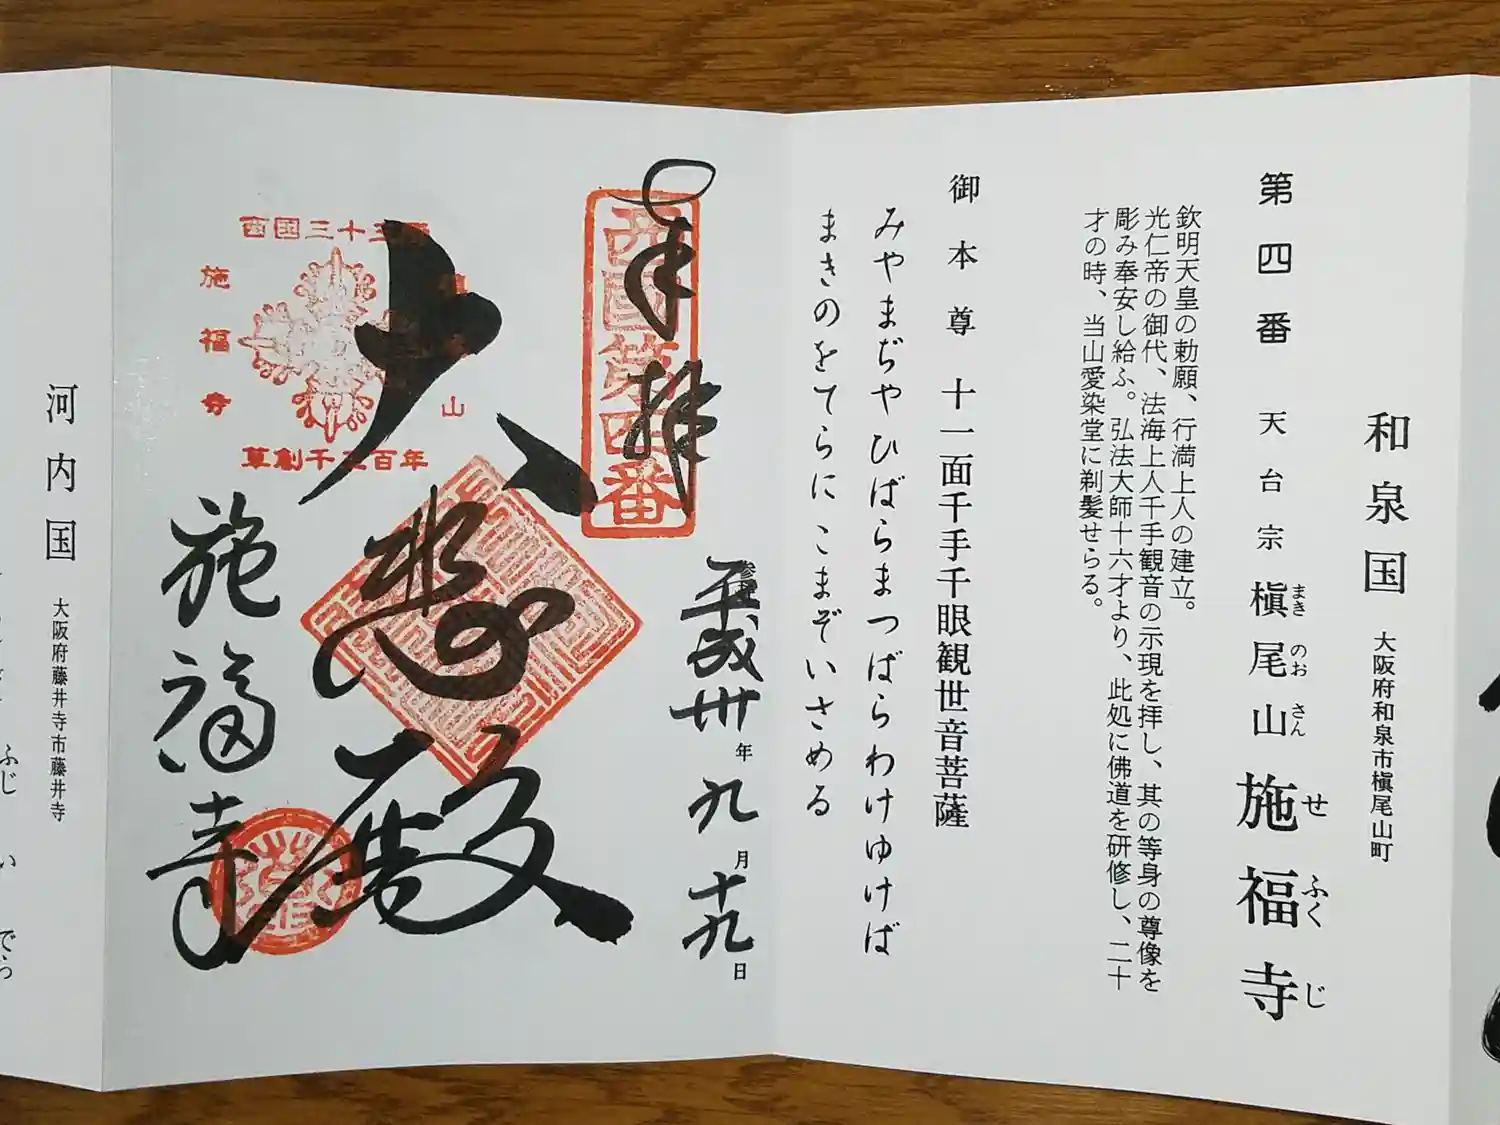 和泉国 大阪府和泉市槇尾山町
第四番 天台宗 槇尾山 施福寺
まきのおさん せふくじ
欽明天皇の勅願、行満上人の建立。
光仁帝の御代、法海上人千手観音の示現を拝し、其の等身の尊像を
彫み奉安し給ふ。弘法大師十六才より、此処に佛道を研修し、二十
才の時、当山愛染堂に剃髪せらる。
御本尊 十一面千手千眼観世音菩薩
みやまぢやひばらまつばらわけゆけば
まきのをてらにこまぞいさめる
奉拝
西國第四番
参拝
平成卅年九月十九日
大悲殿
西国三十三
山
施福寺
草創千三百年
施福寺
河内国 大阪府藤井寺市藤井寺
ふじいでら